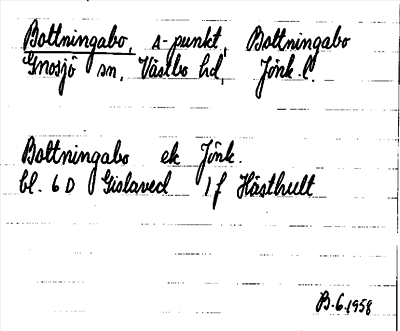 Bottningabo, s-punkt, Bottningabo
Gnosjö sn, Västbo hd, Jönk. l.
Bottningabo ek Jönk.
bl. 6 D Gislaved 1 f Hästhult
B. 6. 1958